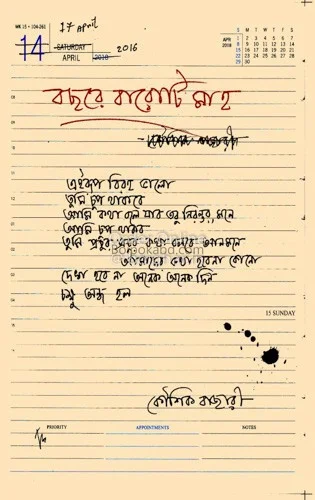 WK 15 • 104-261
17 April
14 SATURDAY 2016
APRIL 2018
APR 2018
S M T W T F S
1 2 3 4 5 6 7
8 9 10 11 12 13 14
15 16 17 18 19 20 21
22 23 24 25 26 27 28
29 30
বছরে বারোটি মাস
এইরূপ বিরহ ভালো
তুমি চুপ থাকবে
আমি কথা বলে যাব তবু নিরন্তর, মনে
আমি চুপ থাকব
তুমি প্রচুর কথা বলবে আনমনে
আমাদের কথা হবেনা কোনো
দেখা হবে না অনেক অনেক দিন
চক্ষু অন্ধ হল
Boipokabd.com
15 SUNDAY
কৌশিক বাজারী
PRIORITY APPOINTMENTS NOTES